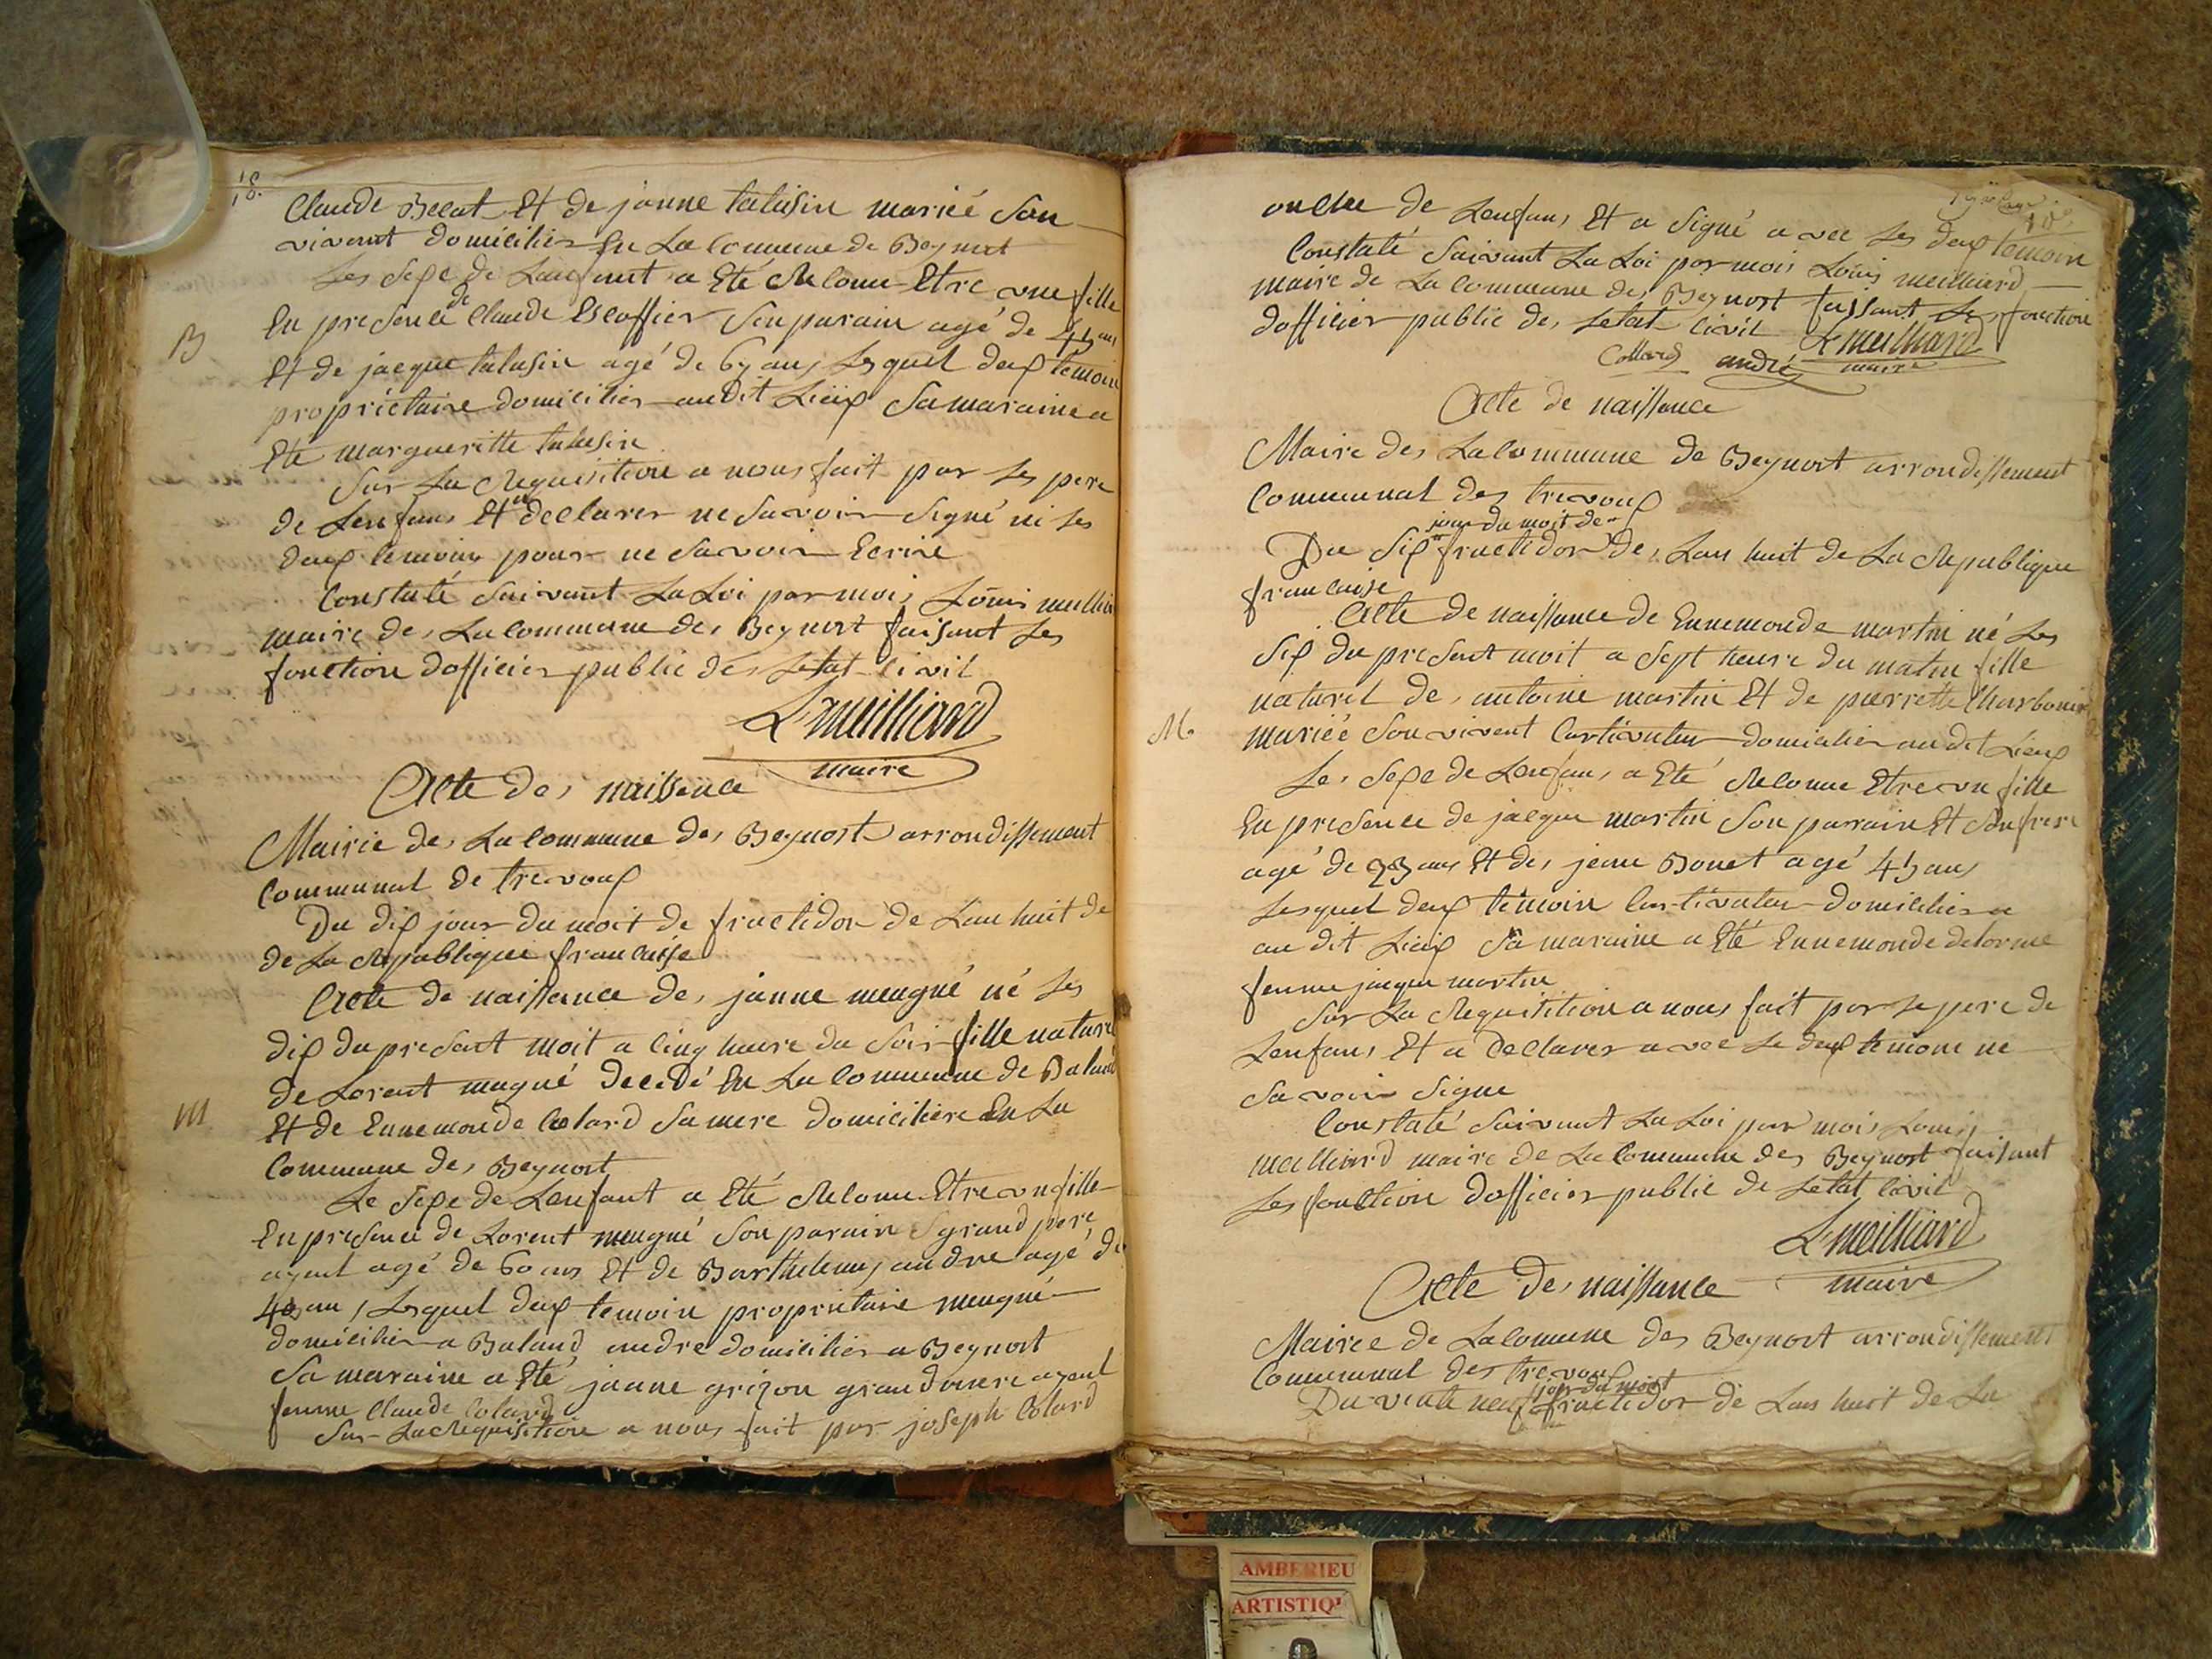 18.
Claude Becat Et de janne talusin mariée Son
vivant domicilier En La Commune de Beynost
Les Sexe de Lanfant a Eté Reconu Etre une fille
En presence de Claude Escoffier Son parain agé de 45 ans
B
Et de jacque talusin agé de 65 ans Lesquel deux temoin
proprietaire domicilier audit Lieux Sa maraine a
Eté margueritte talusin
Sur La Requisition a nous fait par Les pere
de Lenfans Et declarer ne Savoir Signé ni Les
deux temoins pour ne Savoir Ecrire
Constaté Suivant La Loi par moi, Louis
maire de, La Commune de, Beynost faisant Les
fonction dofficier public de, Letat Civil
L meilliard
maire
Acte de, naissance
Mairie de, La Commune de, Beynost arrondissement
Communal de trevoux
Du dix jour du moit de fructidor de Lan huit de
de La Republique francaisse
Acte de naissance de, janne meugné né Les
dix du present moit a Cinq heure du Soir fille naturel
de Lorent mugné decedé En La Commune de Baland
M
Et de Ennemonde Colard Sa mere domiciliere En La
Commune de, Beynost
Le Sexe de Lenfant a Eté Reconu Etre un fille
En presence de Lorent meugné Son parain grand pere
ayeul agé de 60 ans Et de Barthelemy andre agé de
ans Lesquel deux temoin proprietaire meugné
domicilier a Baland andre domicilier a Beynost
Sa maraine a Eté janne grizon grand mere ayeul
femme Claude Colard
Sur La Requisition a nous fait par joseph Colard
oncle de Lenfans Et a Signé avec Les deux temoin
Constaté Suivant La Loi par moi, Louis meilliard
maire de La Commune de, Beynost faisant Les fonction
dofficier public de, Letat Civil L meilliard
Collard andré maire
Acte de naissance
Maire de, La Commune de Beynost arrondissement
Communal des trevoux
jour du moit de
Du Six fructidor de, Lan huit de La Republique
francaise
Acte de naissance de Ennemonde martin né Les
Six du present moit a Sept heure du matin fille
naturel de, antoine martin Et de pierrette Charbonnier
M.
mariée Son vivent Cultivateur domicilier audit Lieux
Le, Sexe de Lenfan, a Eté Reconue Etre un fille
En presence de jacque martin Son parrain Et Son frere
agé de 23 ans Et de, jeanne Bonet agé 45 ans
Lesquel deux temoin Cultivateur domicilier a
au dit Lieux Sa maraine a Eté Ennemonde delorme
femme jacque martin
Sur La Requisition a nous fait par Le pere de
Lenfans Et a declarer avec Le deux temoin ne
Savoir Signe
Constaté Suivant La Loi par moi, Louis
meilliard maire de La Commune des Beynost faisant
Les fonction dofficier public de Letat Civil
L meilliard
maire
Acte de, naissance
Mairee de La Comune des Beynost arrondissement
Communal des trevoux
jour du moit
Du vinte neuf fructidor de Lans huit de La
AMBERIEU
ARTISTIQ'